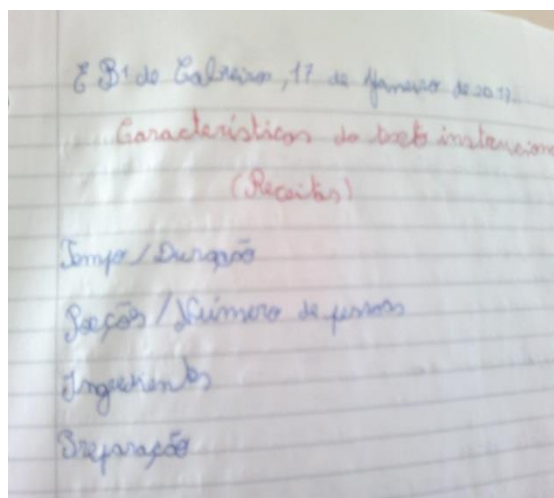 E B1 de Cabreiros, 17 de Janeiro de 2017.
Características do texto instrucion
(Receitas)
Tempo / Duração
Porções / Número de pessoas
Ingredientes
Preparação